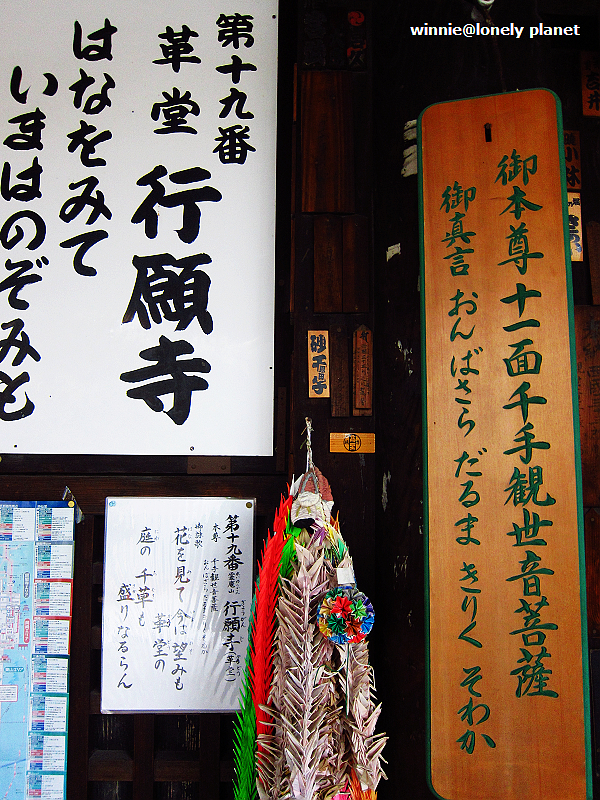 winnie@lonely planet
第十九番
革堂 行願寺
はなをみて
いまはのぞみも
御本尊 十一面千手観世音菩薩
御真言 おん ばさら だるま きりく そわか
砂千
第十九番 霊麀山 行願寺(革堂)
本尊 千手観世音菩薩
おんばさらだるまきりくそわか
御詠歌
花を見て 今は望みも
革堂の
庭の千草も
盛りなるらん